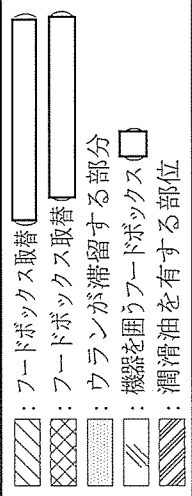 ：フードボックス取替
：フードボックス取替
：ウランが滞留する部分
：機器を囲うフードボックス
：潤滑油を有する部位